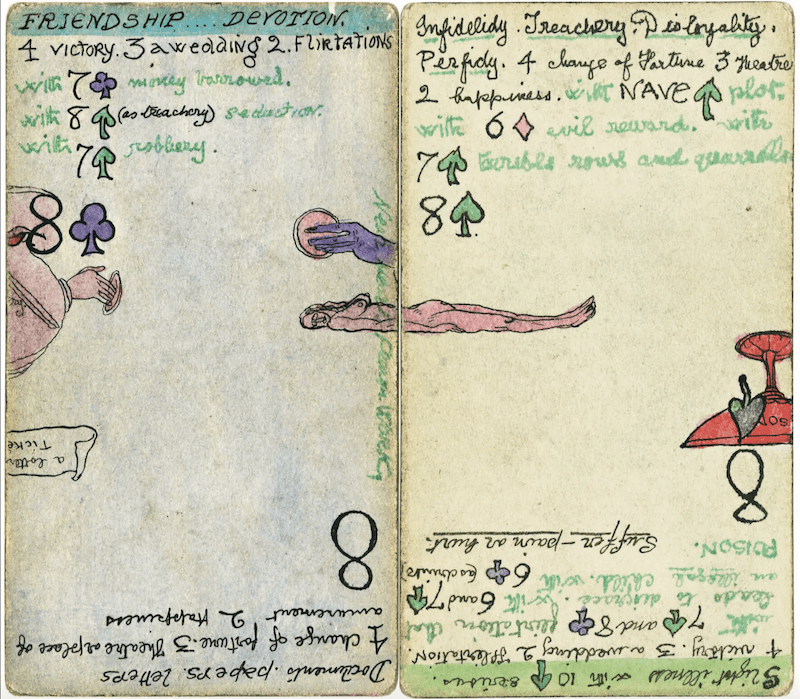 FRIENDSHIP.....DEVOTION.
4 VICTORY. 3 a wedding 2. FLIRTATIONS
with 7♣ money borrowed.
with 8♠ (as treachery) seduction.
with 7♠ robbery.
8♣
News from
a lotter
Ticke
Documents. papers. letters
4 change of fortune. 3 Theatre or place of
amusement 2 Happiness
8
Infidelidy. Treachery. Disloyality.
Perfidy. 4 change of Fortune 3 Theatre
2 happiness. with NAVE ♠ plot.
with 6♦ evil reward. with
7♠ terrible rows and quarrels
8♠
Slight illness with 10♠ serious.
4 victory. 3 a wedding 2 Flertation
with 7♠ and 8♣ flirtation that
leads to disgrace. with 6 and 7♠
an illegal child. with 6♣ (as drinks)
POISON.
Suffer – pain or hurt.
8♠